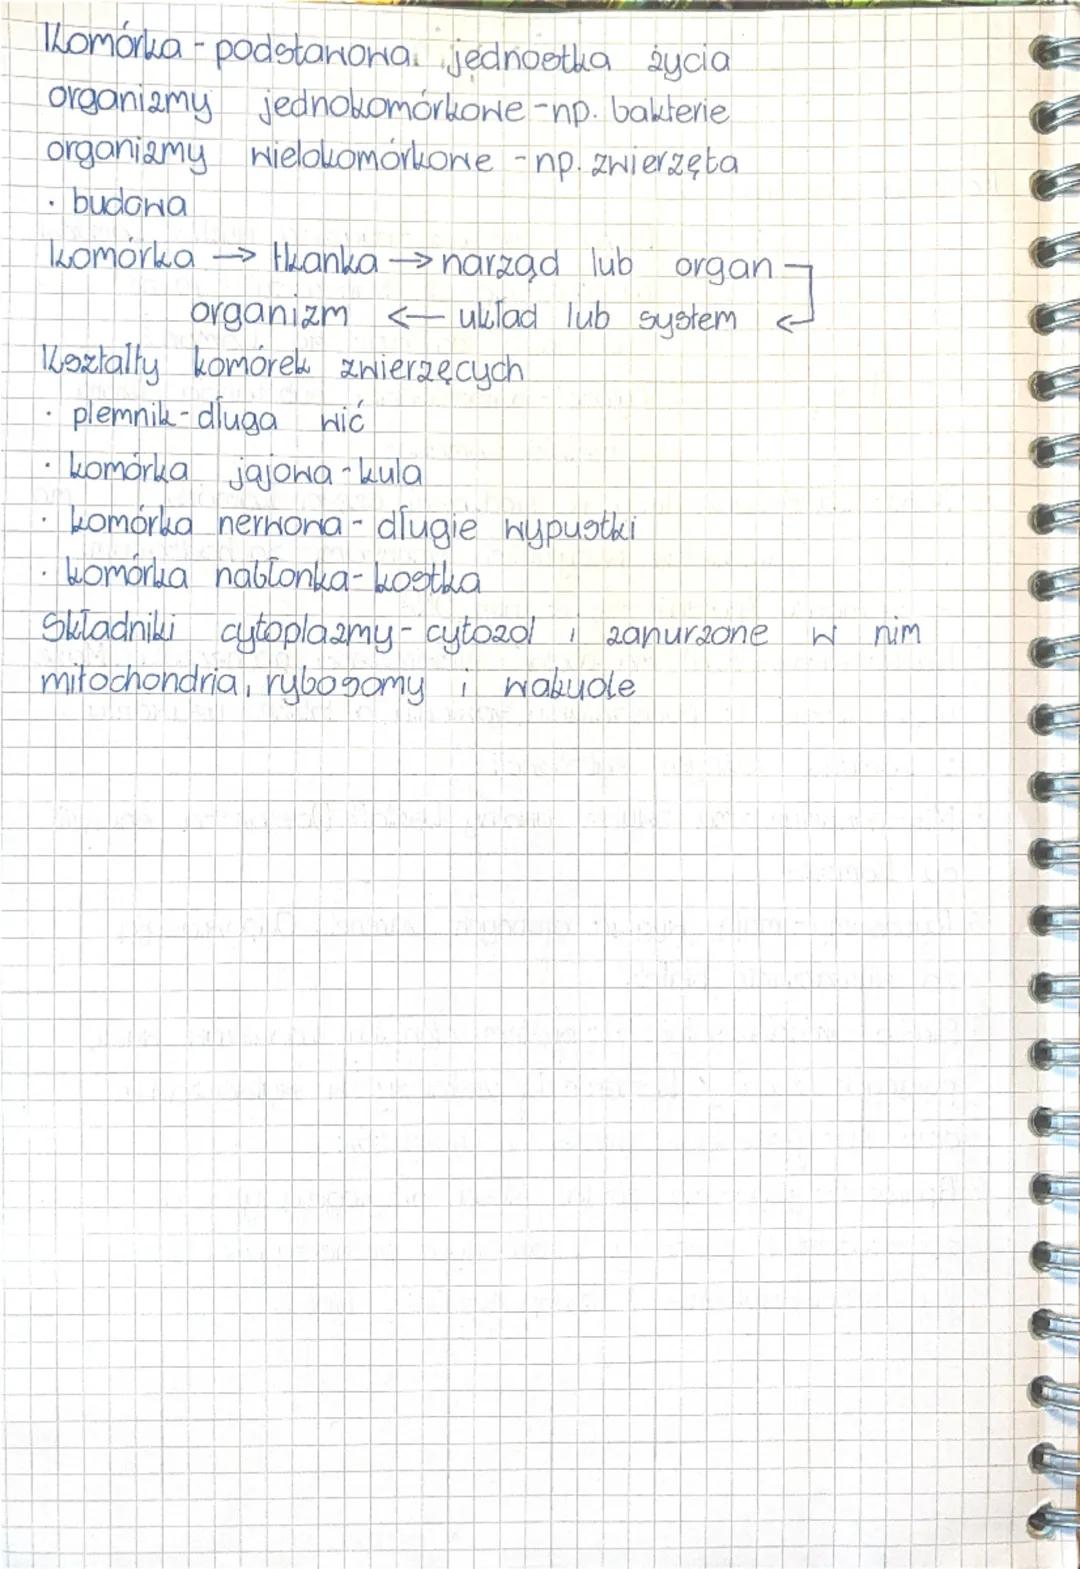 Komórka - podstawowa jednostka życia
organizmy jednokomórkowe - np. bakterie
organizmy wielokomórkowe - np. zwierzęta
· budowa
komórka → tkanka → narząd lub organ
organizm ← układ lub system ←
Kształty komórek zwierzęcych
· plemnik - długa wić
· komórka jajowa - kula
· komórka nerwowa - długie wypustki
· komórka nabłonka - kostka
Składniki cytoplazmy - cytozol i zanurzone w nim
mitochondria, rybosomy i wakuole